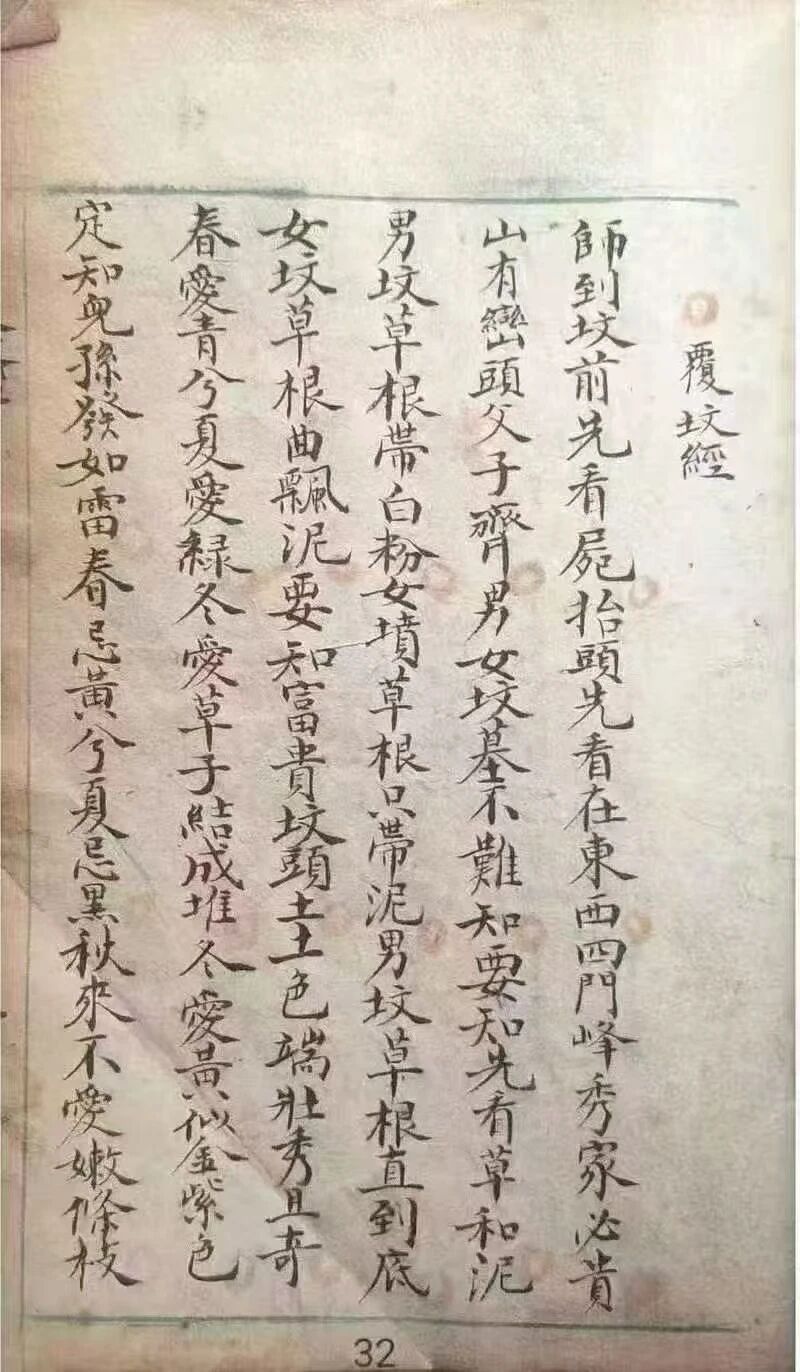 覆坟經
師到坟前先看屍抬頭先看在東西四門峰秀家必貴
山有巒頭父子齊男女坟墓不難知要知先看草和泥
男坟草根帶白粉女墳草根只帶泥男坟草根直到底
女坟草根曲飄泥要知富貴坟頭土土色端壯秀且奇
春愛青兮夏愛綠冬愛草子結成堆冬愛黃似金紫色
定知兒孫發如雷春忌黃兮夏忌黑秋來不愛嫩條枝
32